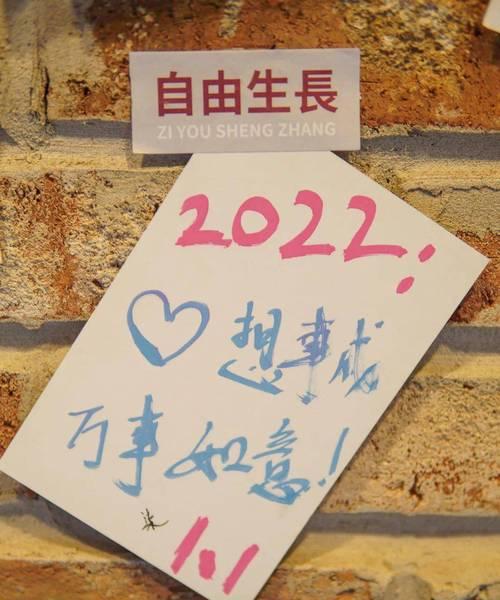 自由生長
ZI YOU SHENG ZHANG
2022:
♡想事成
万事如意!
1.1